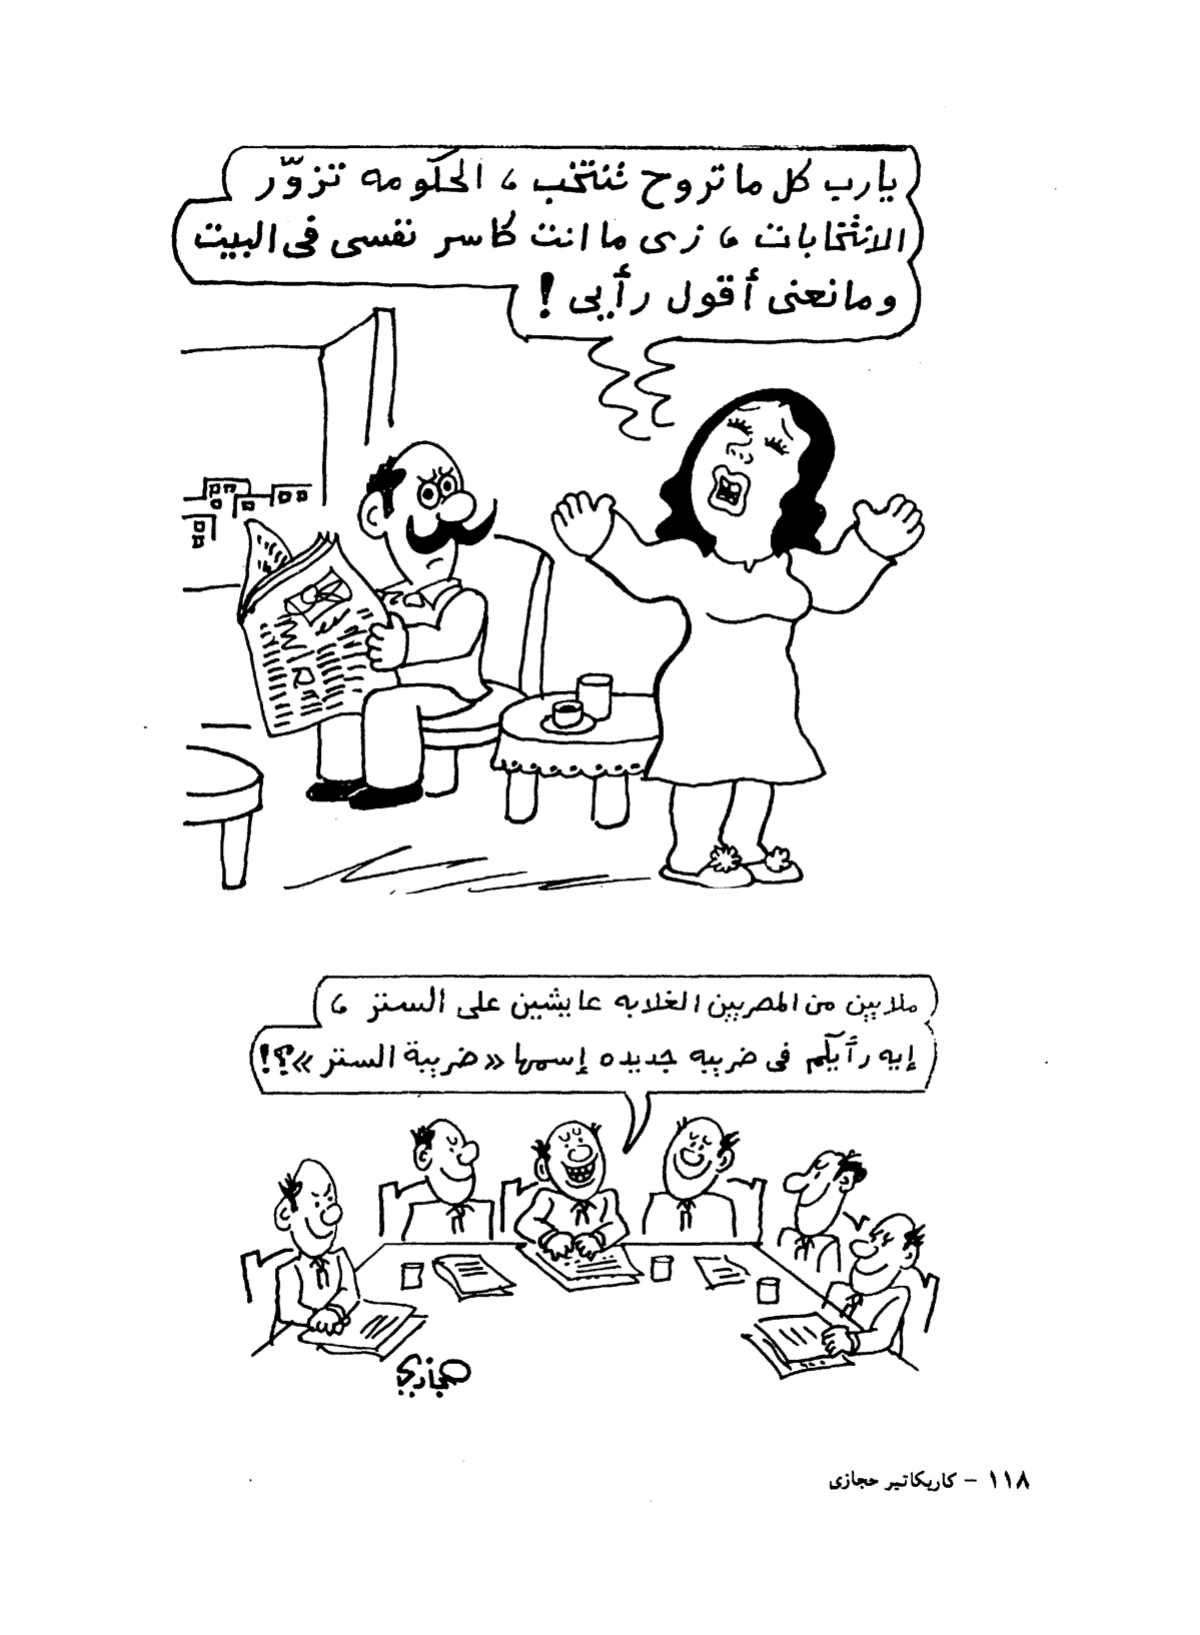 يارب كل ما تروح تنتخب ، الحكومه تزوّر
الانتخابات ، زى ما انت كاسر نفسى فى البيت
ومانعنى أقول رأيى !
ملايين من المصريين الغلابه عايشين على الستر ،
إيه رأيكم فى ضريبه جديده إسمها «ضريبة الستر»؟!
حجازي
١١٨ – كاريكاتير حجازى